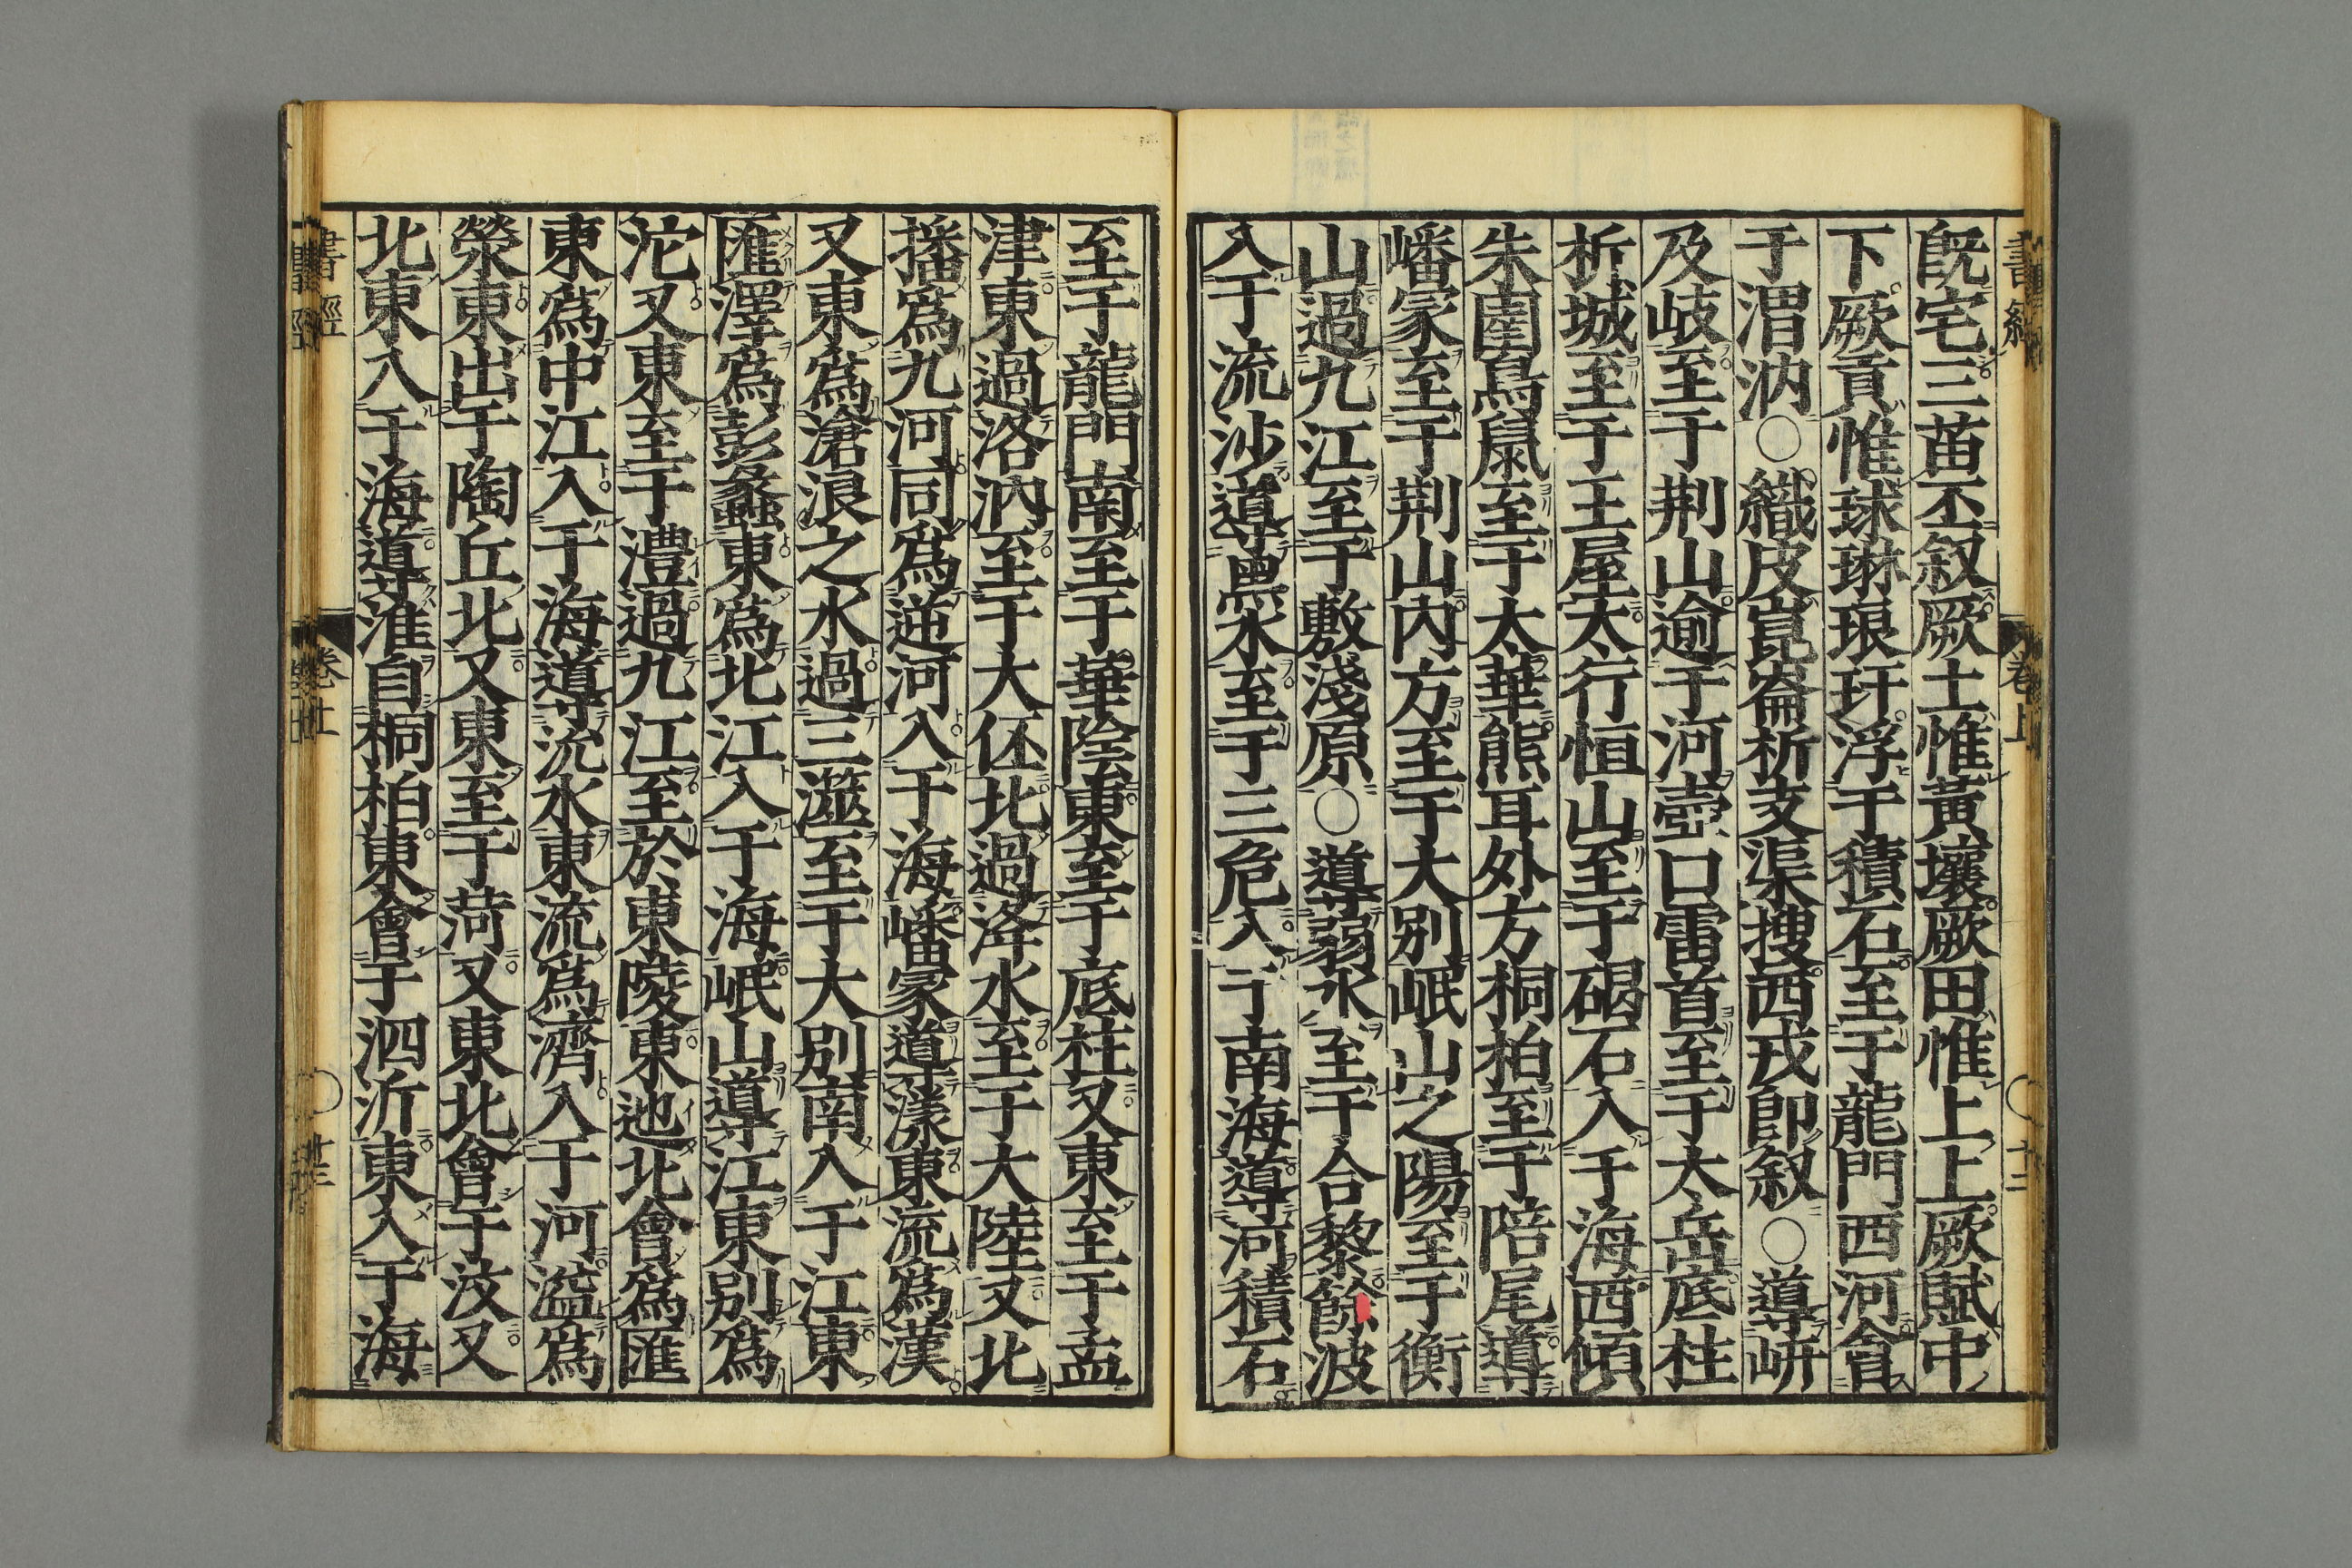 既宅三苗丕叙厥土惟黃壤厥田惟上上厥賦中
下厥貢惟球琳琅玕浮于積石至于龍門西河會
于渭汭○織皮崑崙析支渠搜西戎卽叙○導岍
及岐至于荆山逾于河壺口雷首至于太岳底柱
析城至于王屋太行恒山至于碣石入于海西傾
朱圉鳥鼠至于太華熊耳外方桐柏至于陪尾導
嶓冢至于荆山內方至于大別岷山之陽至于衡
山過九江至于敷淺原○導弱水至于合黎餘波
入于流沙導黑水至于三危入于南海導河積石
至于龍門南至于華陰東至于底柱又東至于孟
津東過洛汭至于大伾北過洚水至于大陸又北
播爲九河同爲逆河入于海嶓冢導漾東流爲漢
又東爲滄浪之水過三澨至于大別南入于江東
匯澤爲彭蠡東爲北江入于海岷山導江東別爲
沱又東至于澧過九江至於東陵東迆北會爲匯
東爲中江入于海導沇水東流爲濟入于河溢爲
滎東出于陶丘北又東至于菏又東北會于汶又
北東入于海導淮自桐柏東會于泗沂東入于海
書經 卷上 ○ 十三